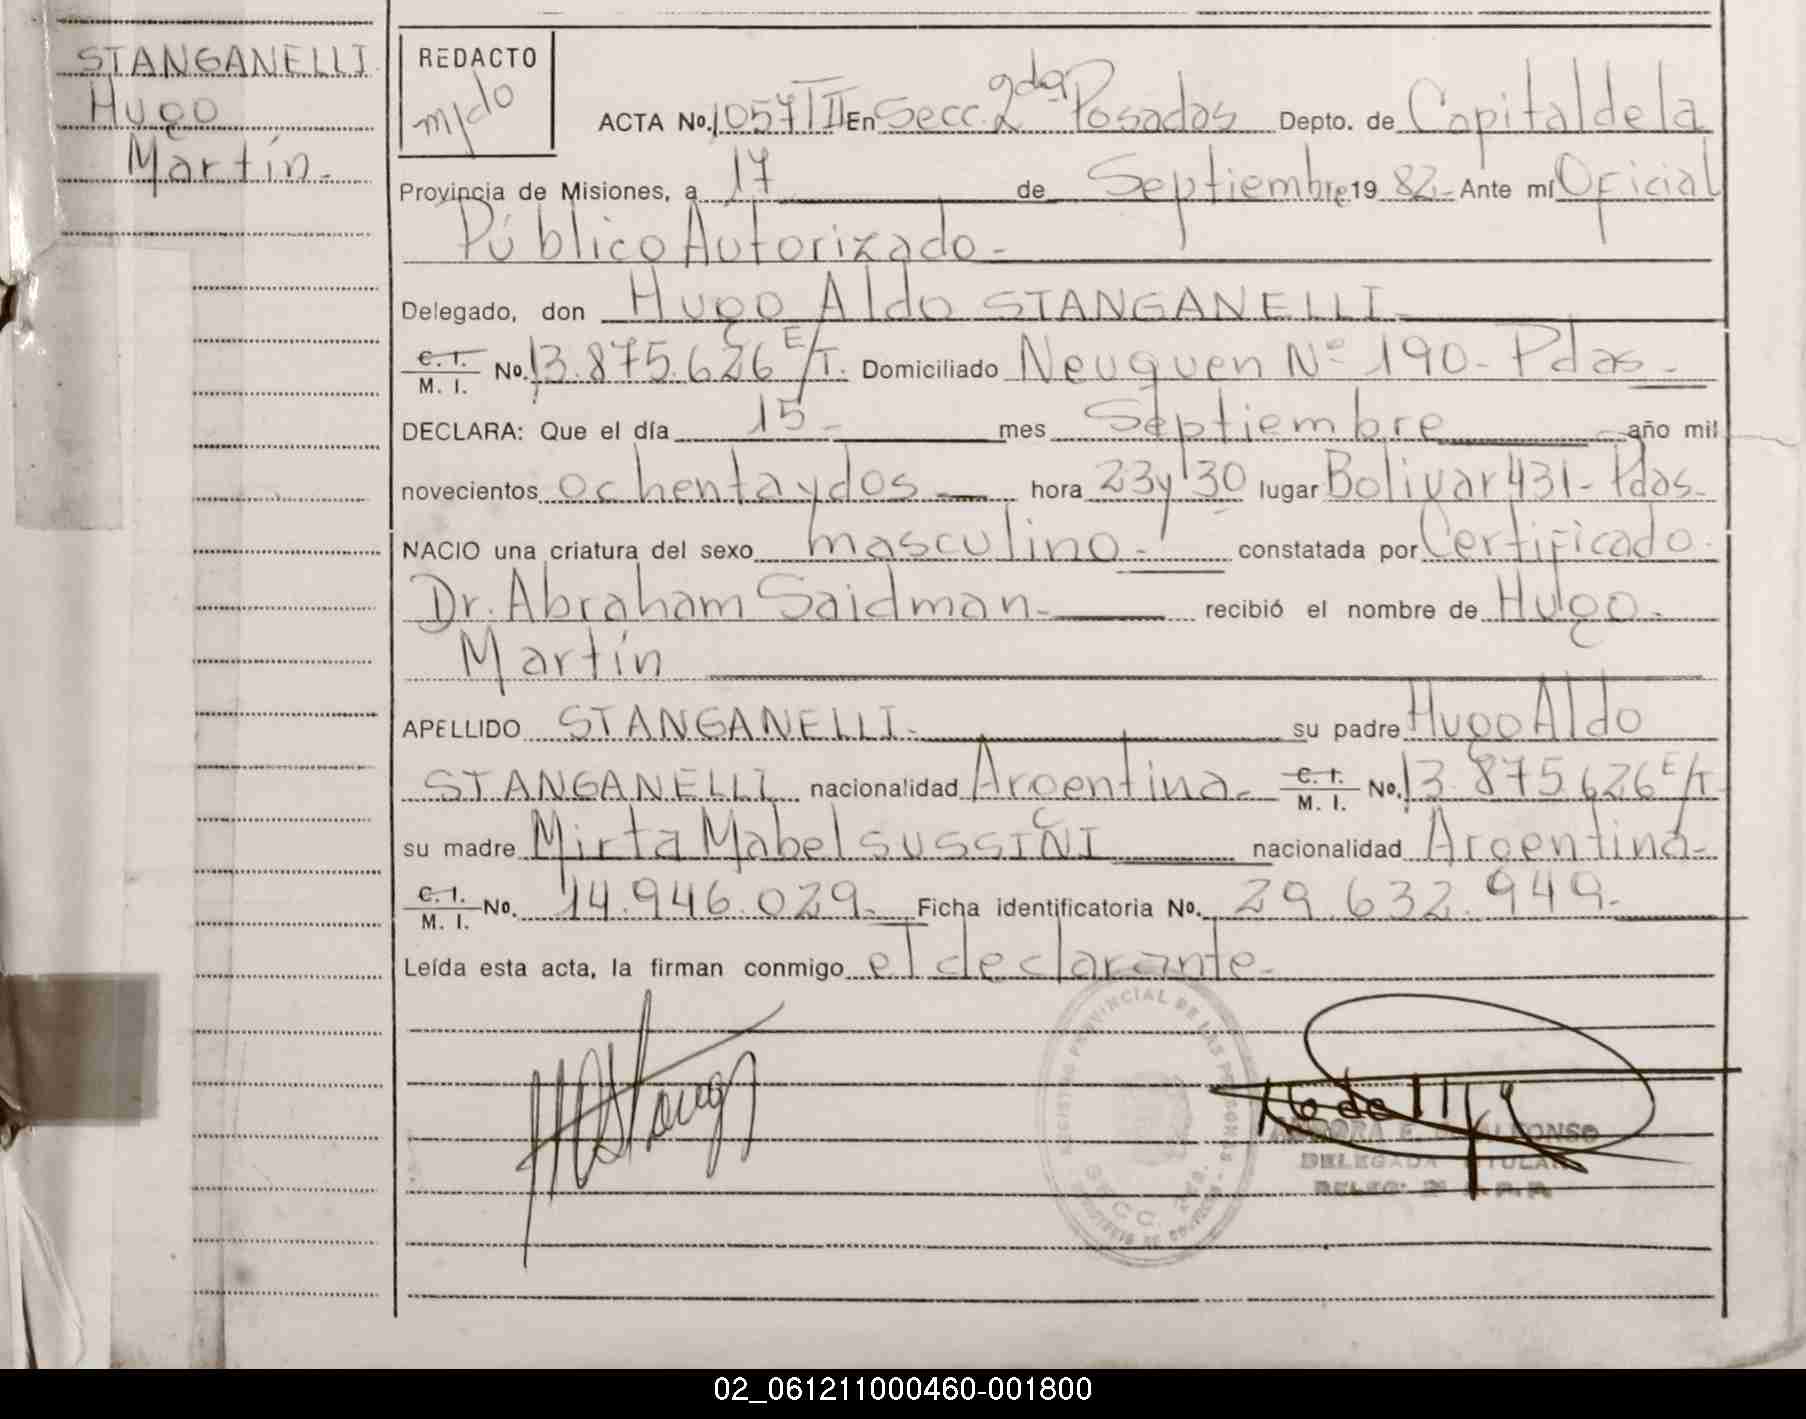 STANGANELLI
Hugo
Martín.-
REDACTO
ACTA No. 1057 T II En Secc. 2da Posadas Depto. de Capital de la
Provincia de Misiones, a 17 de Septiembre 19 82.- Ante mí Oficial
Público Autorizado.-
Delegado, don Hugo Aldo STANGANELLI.
C. I. / M. I. No. 13.875.626 E/T. Domiciliado Neuquen Nº 190.- Pdas.-
DECLARA: Que el día 15.- mes Septiembre año mil
novecientos ochenta y dos hora 23 y 30 lugar Bolivar 431.- Pdas.-
NACIO una criatura del sexo masculino.- constatada por Certificado.
Dr. Abraham Saidman.- recibió el nombre de Hugo.
Martín
APELLIDO STANGANELLI.- su padre Hugo Aldo
STANGANELLI nacionalidad Argentina.- C. I. / M. I. No. 13.875.626 E/T.
su madre Mirta Mabel SUSSINI nacionalidad Argentina.-
C. I. / M. I. No. 14.946.029.- Ficha identificatoria No. 29.632.949.-
Leída esta acta, la firman conmigo el declarante.-
REGISTRO PROVINCIAL DE LAS PERSONAS
SECC. 2da.
DELEGADA TITULAR
02_061211000460-001800